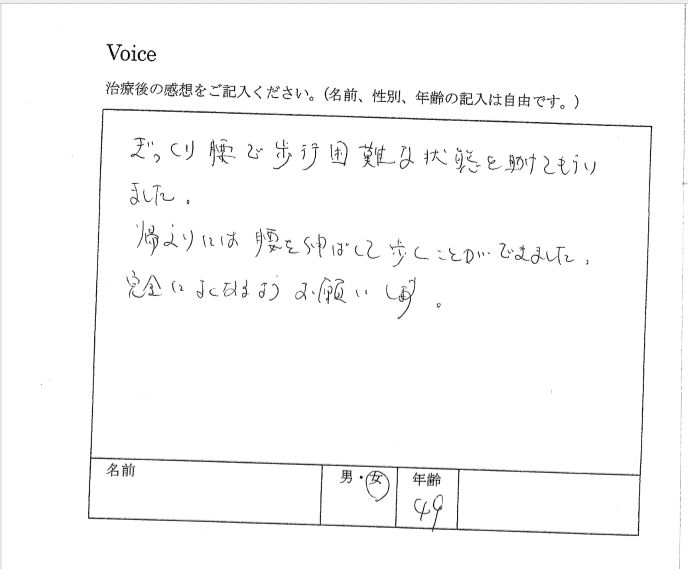 Voice
治療後の感想をご記入ください。(名前、性別、年齢の記入は自由です。)
ぎっくり腰で歩行困難な状態を助けてもらい
ました。
帰りには腰を伸ばして歩くことができました。
完全によくなるようお願いします。
名前
男・女
年齢
49